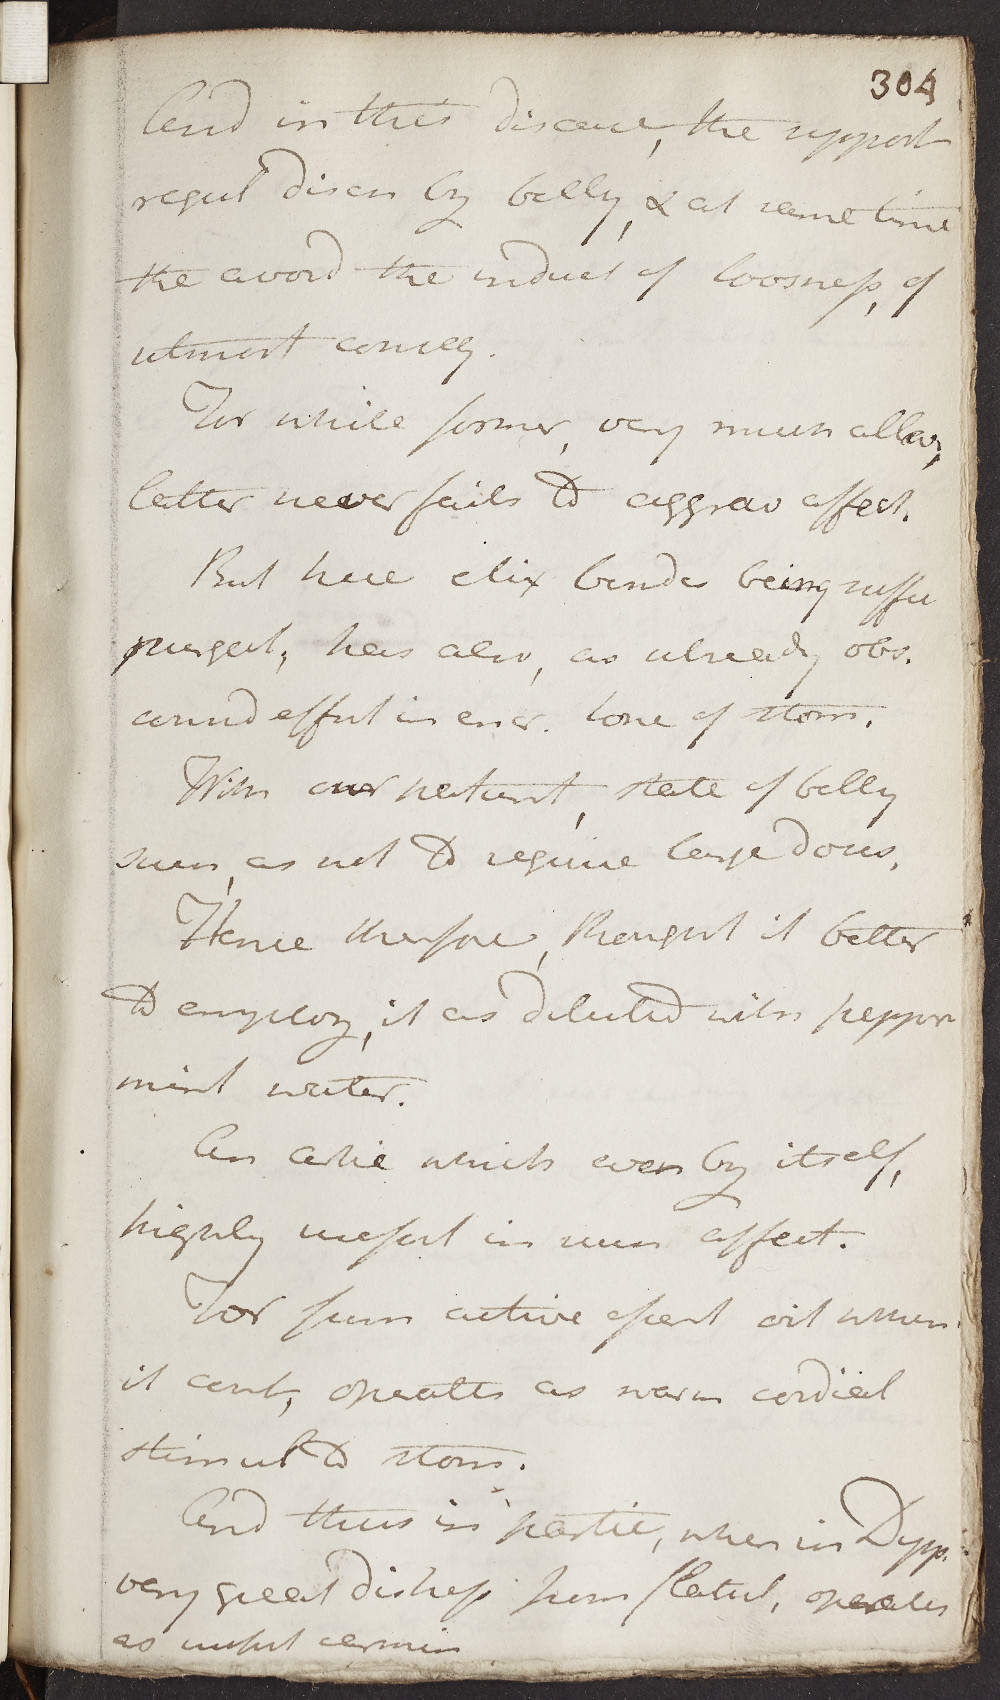 304
And in this disease, the support
regul disch by belly, & at same time
the avoid the induct of loosness, of
utmost conseq.
For while former, very much allev,
latter never fails to aggrav affect.
But here elix besides being suffi
purgat, has also, as already obs.
consid effect in encr. tone of stom.
With our patient, state of belly
such, as not to require large doses.
Hence therefore, thought it better
to employ, it as diluted with pepper
mint water.
An article which even by itself,
highly useful in such affect.
For from active essent oil which
it cont, operates as warm cordial
stimul to stom.
And thus in partic, when in Dysp.
very great distress from flatul, operates
as useful carmin